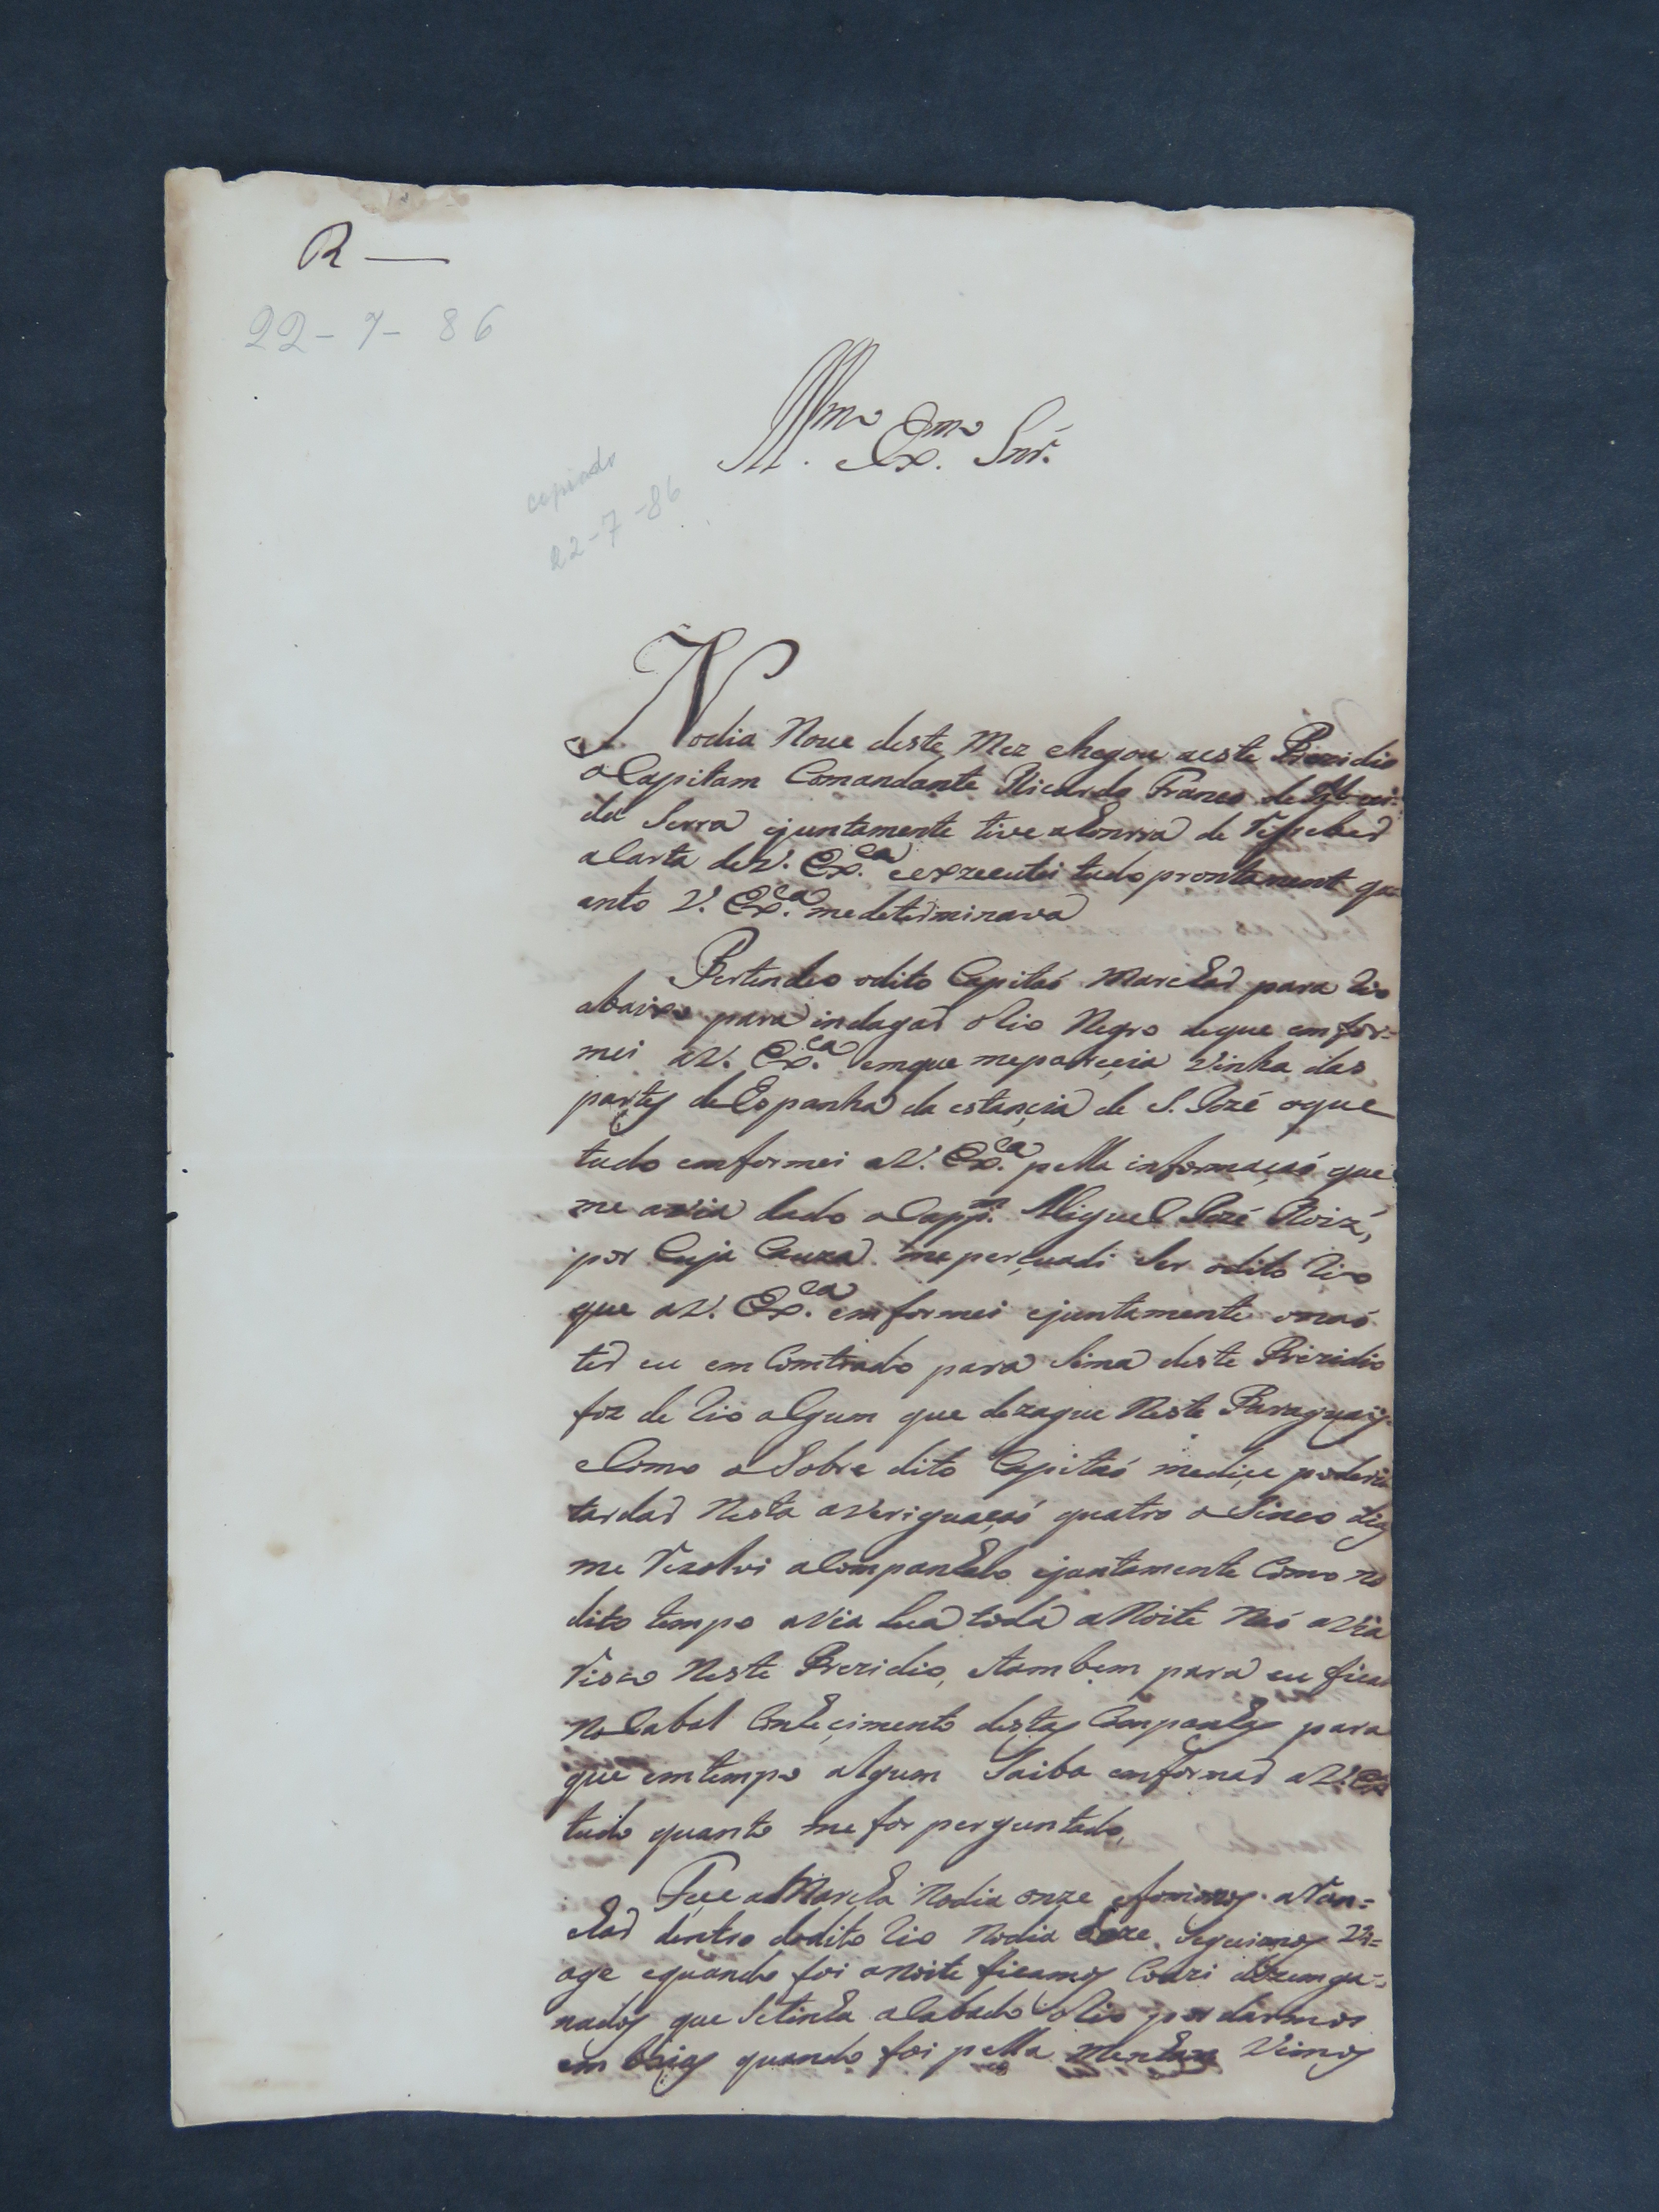 R —
22-7-86
Ill.mo Ex.mo Snr.
copiado
22-7-86
Nodia Nove deste Mez chegou aeste Prezidio
oCapitam Comandante Ricardo Franco de Almei-
da Serra ejuntamente tive ahonrra de resseber
aCarta de V. Ex.ca eexzecutei tudo prontament qu
anto V. Ex.ca medeterminava
Pertendeo odito Capitaó marchar para Rio
abaixo para indagar oRio Negro deque emfor=
mei aV. Ex.ca emque mepareçia vinha das
partes deEspanha da estançia de S. Jozé oque
tudo emformei aV. Ex.ca pella informaçaó que
me avia dado oCapp.m Miguel Jozé Roiz,
por Cuja Cauza meperçuadi Ser odito Rio
que aV. Ex.ca emformei ejuntamente onaó
ter eu emComtrado para Sima deste Prezidio
foz de Rio algum que dezague Neste Paraguay
eComo oSobre dito Capitaó mediçe poderia
tardar Nesta averiguaçaó quatro oSinco dias
me Rezolvi aCompanhalo ejuntamente Como no
dito tempo avia Lua toda aNoite Naó avia
Risco Neste Prezidio, etambem para eu ficar
NoCabal Conheçimento destas Companhas para
que emtempo algum Saiba emformar aV. Ex
tudo quanto me for perguntado,
Fes a Marcha Nodia onze efomonos aRan=
char dentro dodito Rio Nodia doze. Seguimos Vi=
age equando foi aNoite ficamos Cauzi dezemga=
nados que Setinha aCabado oRio por darmos
em baias quando foi pella Menhaa Vimos